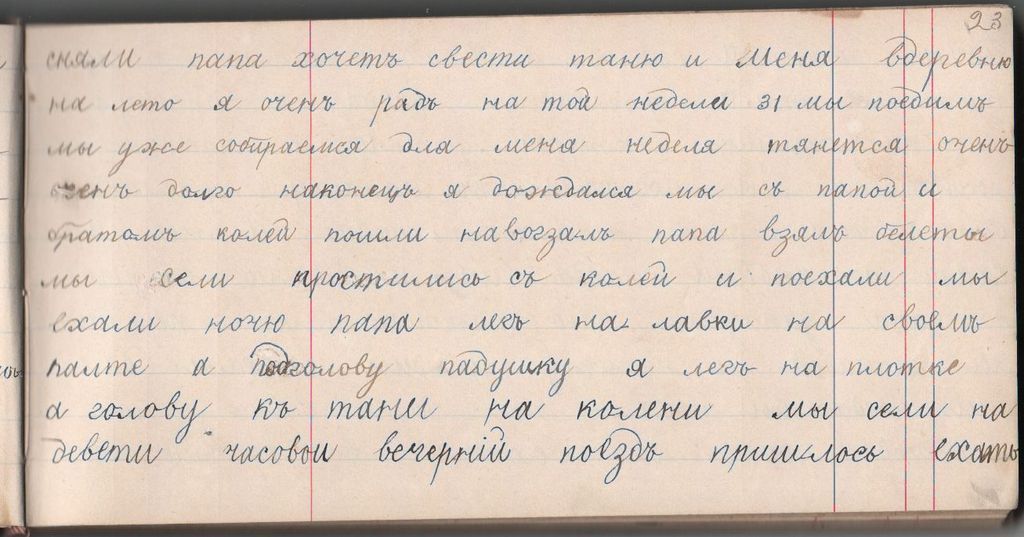 23
сняли папа хочетъ свести таню и меня вдеревню
на лето я оченъ радъ на той недели 31 мы поедимъ
мы уже собираемся для меня неделя тянется оченъ
оченъ долго наконецъ я дождался мы съ папой и
братомъ колей пошли навогзалъ папа взялъ белеты
мы сели простились съ колей и поехали мы
ехали ночю папа легъ на лавки на своемъ
палте а подголову падушку я легъ на плотке
а голову къ тани на колени мы сели на
девети часовой вечерній поездъ пришлось ехать